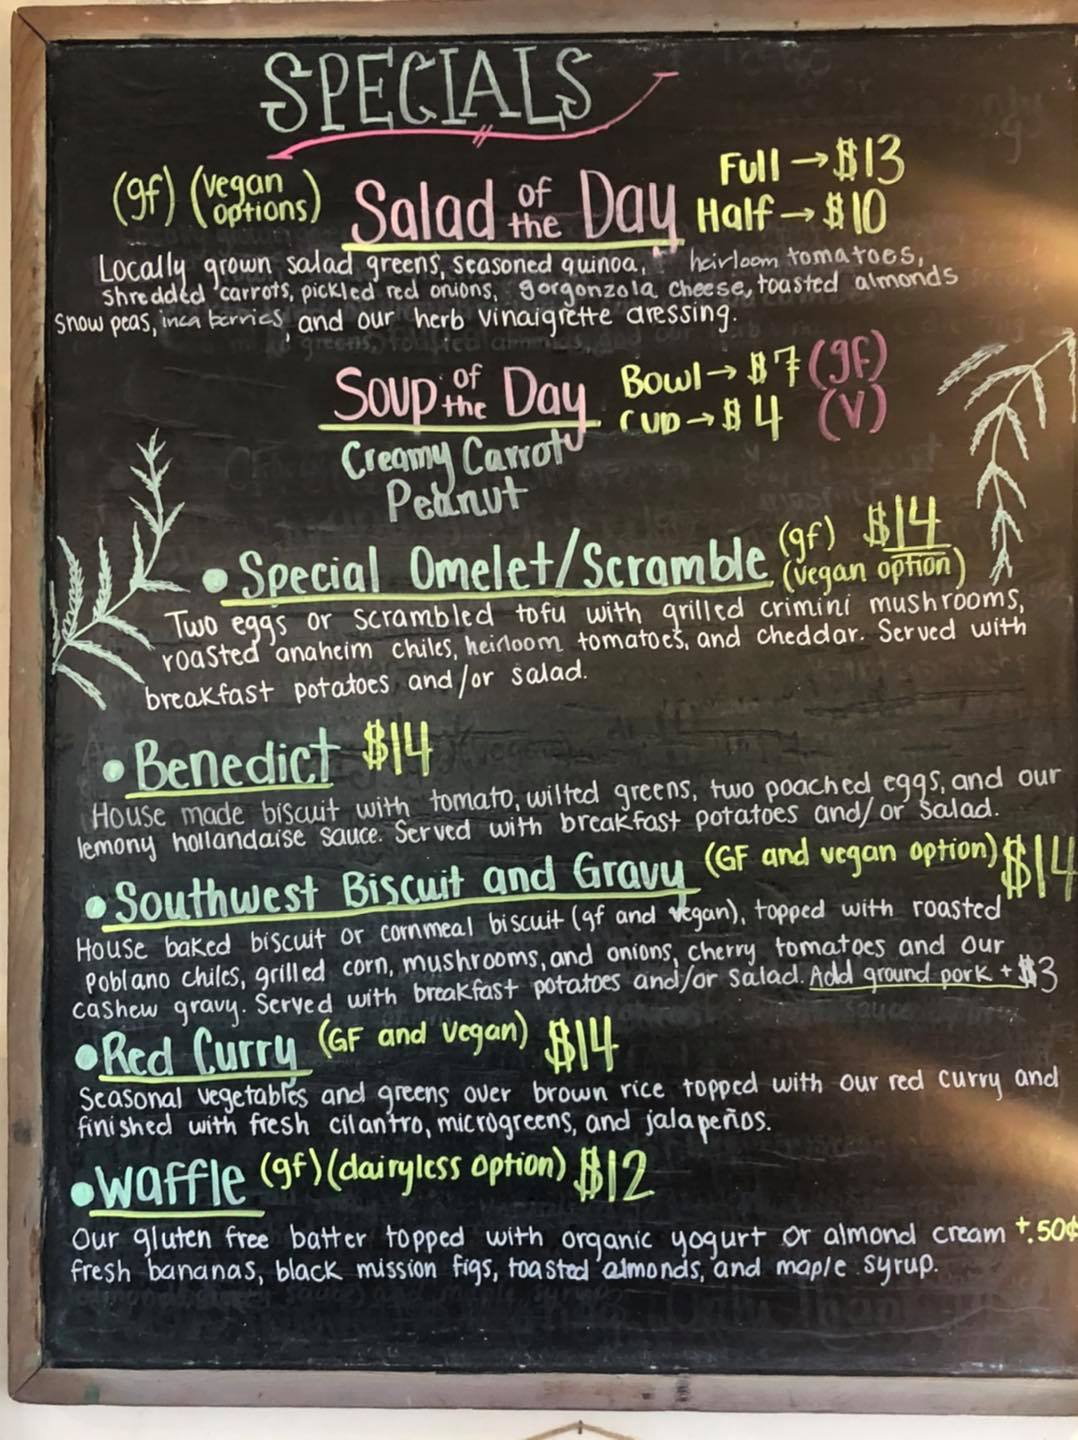 SPECIALS
(gf) (vegan options) Salad of the Day Full → $13
Half → $10
Locally grown salad greens, seasoned quinoa, heirloom tomatoes,
shredded carrots, pickled red onions, gorgonzola cheese, toasted almonds
snow peas, inca berries, and our herb vinaigrette dressing.
Soup of the Day Bowl → $7 (gf)
cup → $4 (V)
Creamy Carrot
Peanut
• Special Omelet/Scramble (gf) $14
(vegan option)
Two eggs or scrambled tofu with grilled crimini mushrooms,
roasted anaheim chiles, heirloom tomatoes, and cheddar. Served with
breakfast potatoes and/or salad.
• Benedict $14
House made biscuit with tomato, wilted greens, two poached eggs, and our
lemony hollandaise sauce. Served with breakfast potatoes and/or salad.
• Southwest Biscuit and Gravy (GF and vegan option) $14
House baked biscuit or cornmeal biscuit (gf and vegan), topped with roasted
poblano chiles, grilled corn, mushrooms, and onions, cherry tomatoes and our
cashew gravy. Served with breakfast potatoes and/or salad. Add ground pork + $3
• Red Curry (GF and Vegan) $14
Seasonal vegetables and greens over brown rice topped with our red curry and
finished with fresh cilantro, microgreens, and jalapeños.
• Waffle (gf) (dairyless option) $12
Our gluten free batter topped with organic yogurt or almond cream +.50¢
fresh bananas, black mission figs, toasted almonds, and maple syrup.